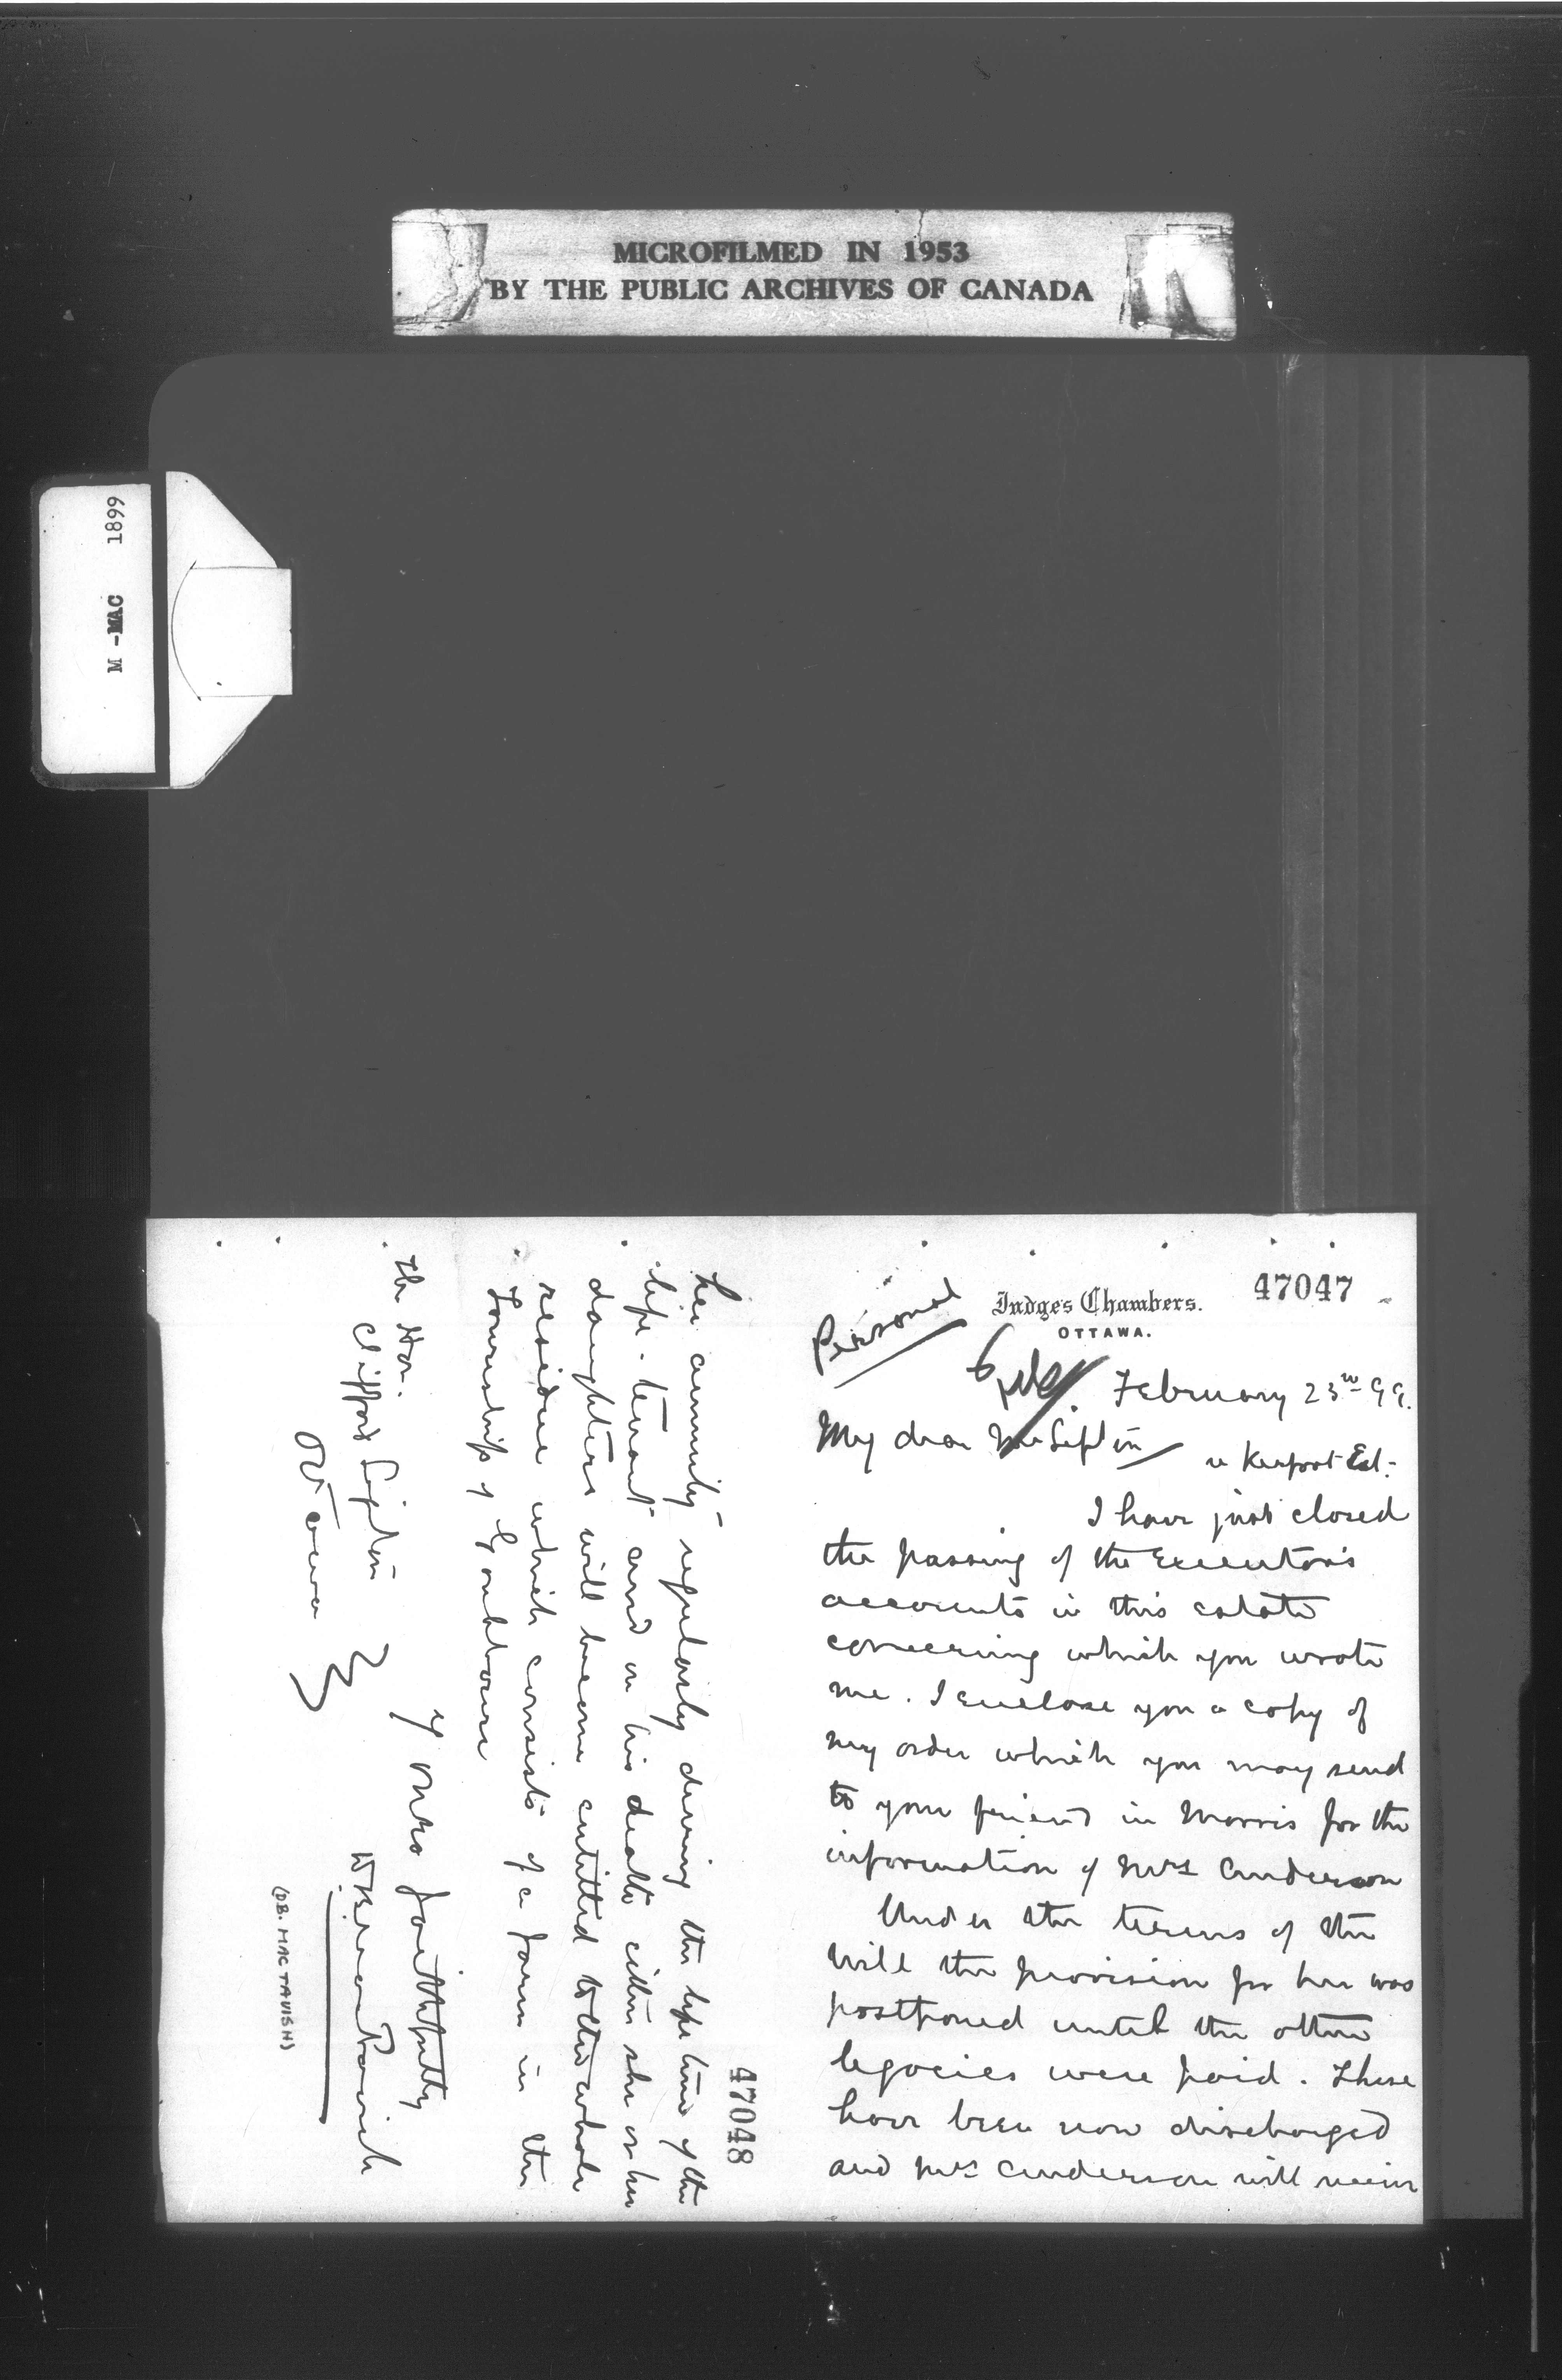 MICROFILMED IN 1953
BY THE PUBLIC ARCHIVES OF CANADA
M - MAC 1899
47047
Judge's Chambers.
OTTAWA.
Personal
February 23rd 99.
My dear Mr Sifton
re Kerfoot Est.
I have just closed
the passing of the Executor's
accounts in this estate
concerning which you wrote
me. I enclose you a copy of
my order which you may send
to your friend in Morris for the
information of Mrs Anderson
Under the terms of the
Will the provision for her was
postponed until the other
legacies were paid. These
have been now discharged
and Mrs Anderson will receive
47048
her annuity regularly during the life time of the
life-tenant and on his death either she or her
daughters will become entitled to the whole
residue which consists of a farm in the
Township of Goulbourn
Yours faithfully
D B MacTavish
(D.B. MACTAVISH)
The Hon.
Clifford Sifton
Ottawa